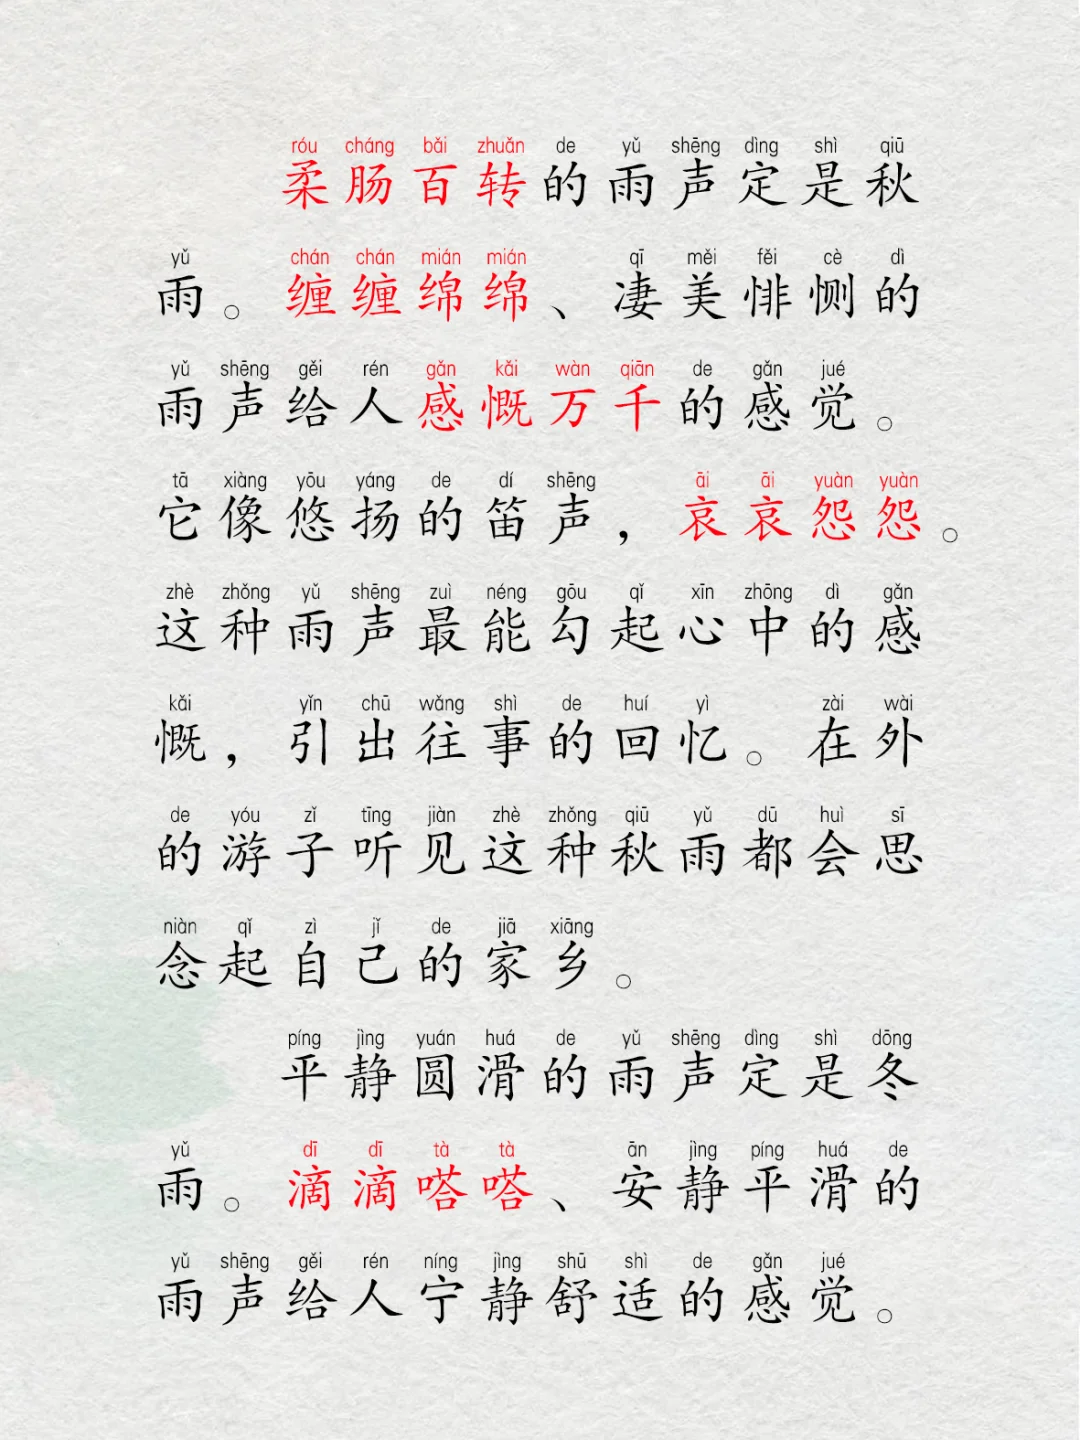 róu cháng bǎi zhuǎn de yǔ shēng dìng shì qiū
柔肠百转的雨声定是秋
yǔ chán chán mián mián qī měi fěi cè dì
雨。缠缠绵绵、凄美悱恻的
yǔ shēng gěi rén gǎn kǎi wàn qiān de gǎn jué
雨声给人感慨万千的感觉。
tā xiàng yōu yáng de dí shēng āi āi yuàn yuàn
它像悠扬的笛声，哀哀怨怨。
zhè zhǒng yǔ shēng zuì néng gōu qǐ xīn zhōng dì gǎn
这种雨声最能勾起心中的感
kǎi yǐn chū wǎng shì de huí yì zài wài
慨，引出往事的回忆。在外
de yóu zǐ tīng jiàn zhè zhǒng qiū yǔ dū huì sī
的游子听见这种秋雨都会思
niàn qǐ zì jǐ de jiā xiāng
念起自己的家乡。
píng jìng yuán huá de yǔ shēng dìng shì dōng
平静圆滑的雨声定是冬
yǔ dī dī tà tà ān jìng píng huá de
雨。滴滴嗒嗒、安静平滑的
yǔ shēng gěi rén níng jìng shū shì de gǎn jué
雨声给人宁静舒适的感觉。